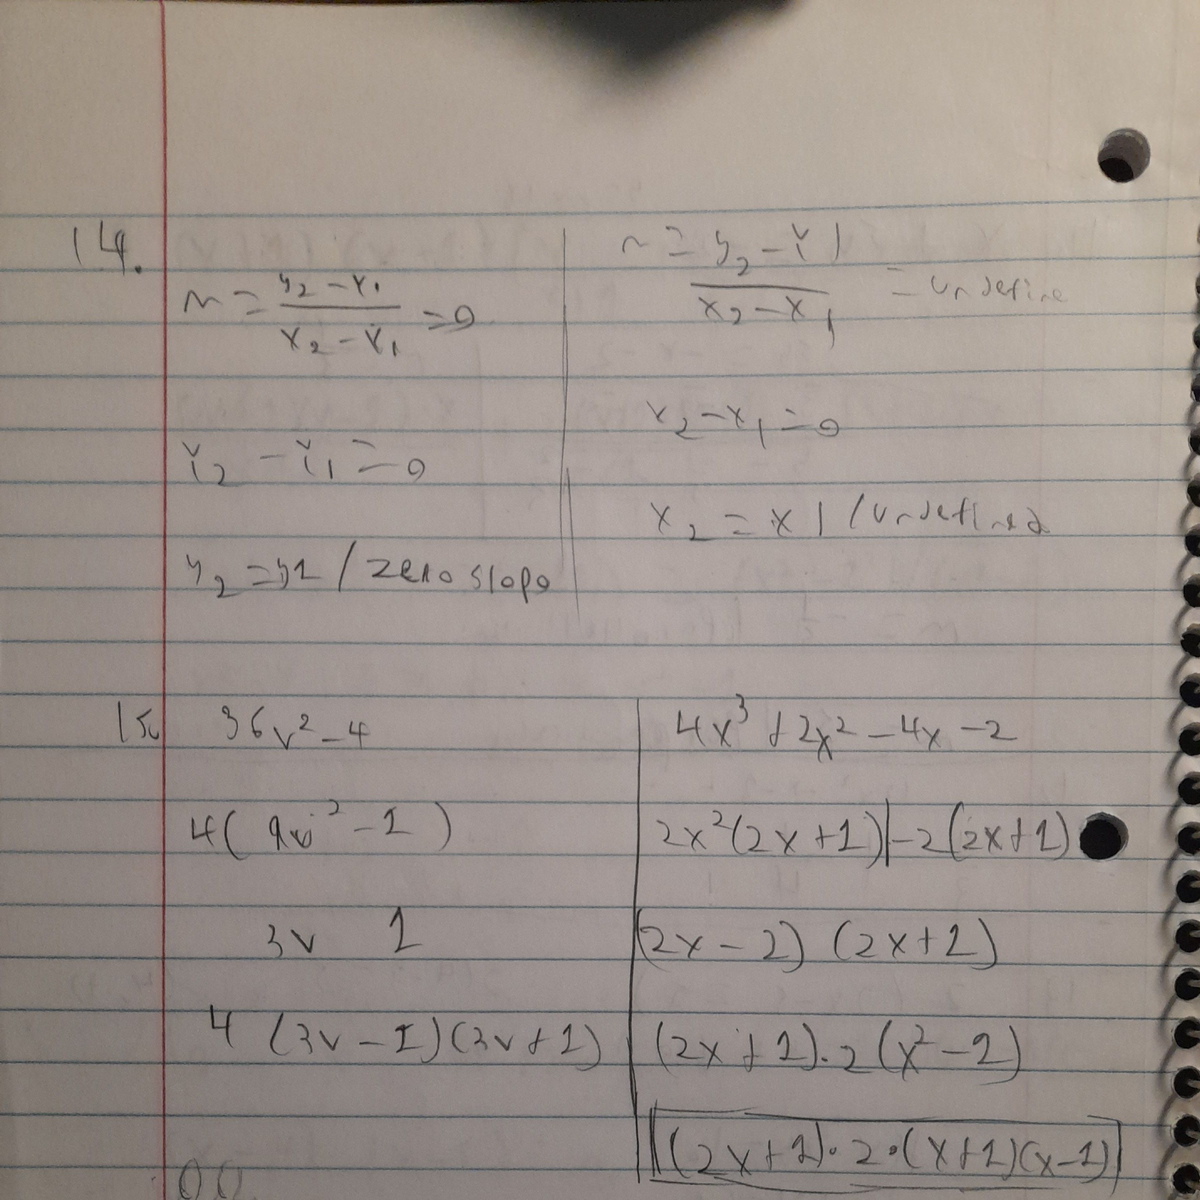 14.
m = y₂ - y₁ / x₂ - x₁ = 0
y₂ - y₁ = 0
y₂ = y1 / zero slope
m = y₂ - y1 / x₂ - x₁ = undefine
x₂ - x₁ = 0
x₂ = x1 / undefined
15.
36v² - 4
4( 9v² - 1 )
3v 1
4 (3v - 1)(3v + 1)
4x³ + 2x² - 4x - 2
2x²(2x + 1)|-2(2x+1)
(2x - 2) (2x+1)
(2x + 1)·2(x² - 1)
(2x+1)·2·(x+1)(x-1)